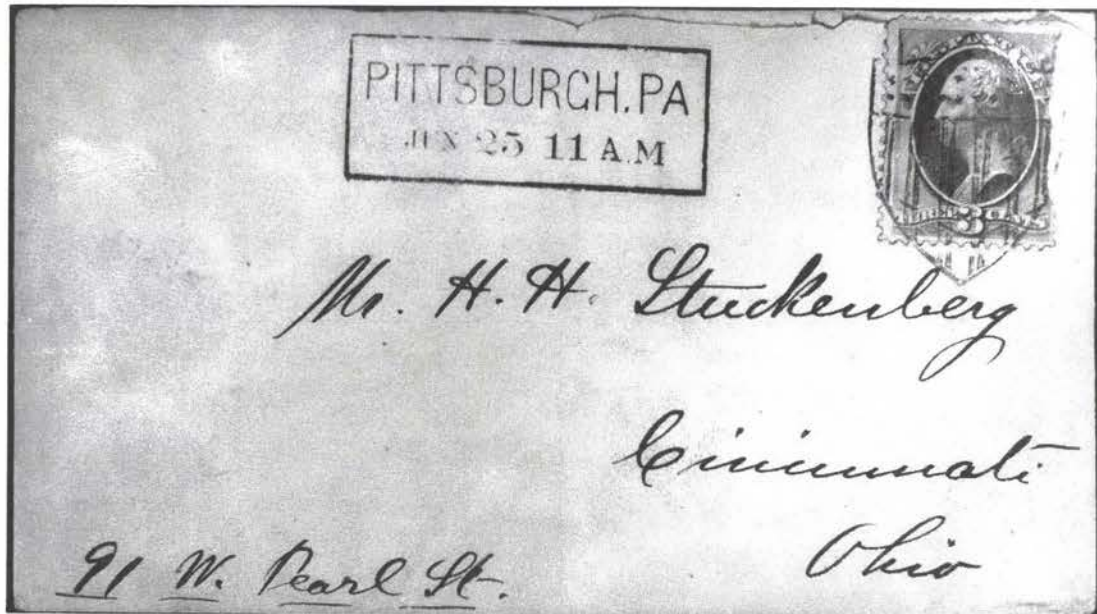 PITTSBURGH.PA
JUN 25 11 A.M
THREE 3 CENTS
Mr. H. H. Stuckenberg
Cincinnati
Ohio
91 W. Pearl St.